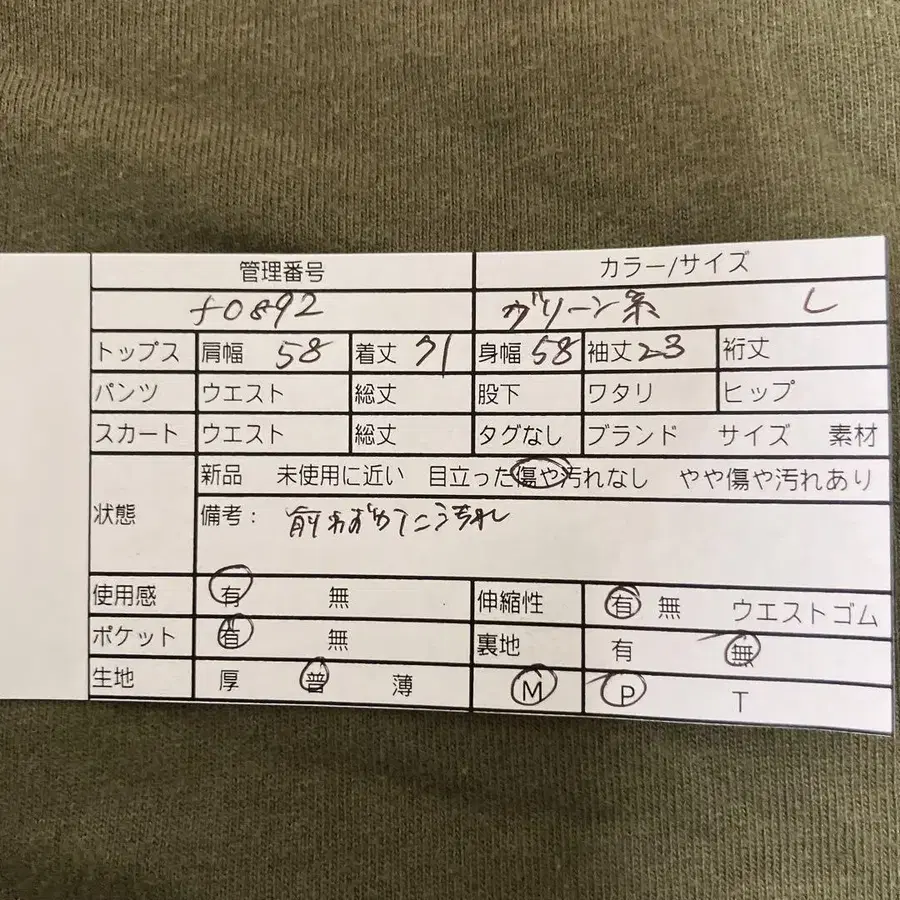 管理番号 カラー/サイズ
f0892 グリーン系 L
トップス 肩幅 58 着丈 71 身幅 58 袖丈 23 裄丈
パンツ ウエスト 総丈 股下 ワタリ ヒップ
スカート ウエスト 総丈 タグなし ブランド サイズ 素材
新品 未使用に近い 目立った傷や汚れなし やや傷や汚れあり
状態 備考: 前わずかてこ汚れ
使用感 有 無 伸縮性 有 無 ウエストゴム
ポケット 有 無 裏地 有 無
生地 厚 普 薄 M P T